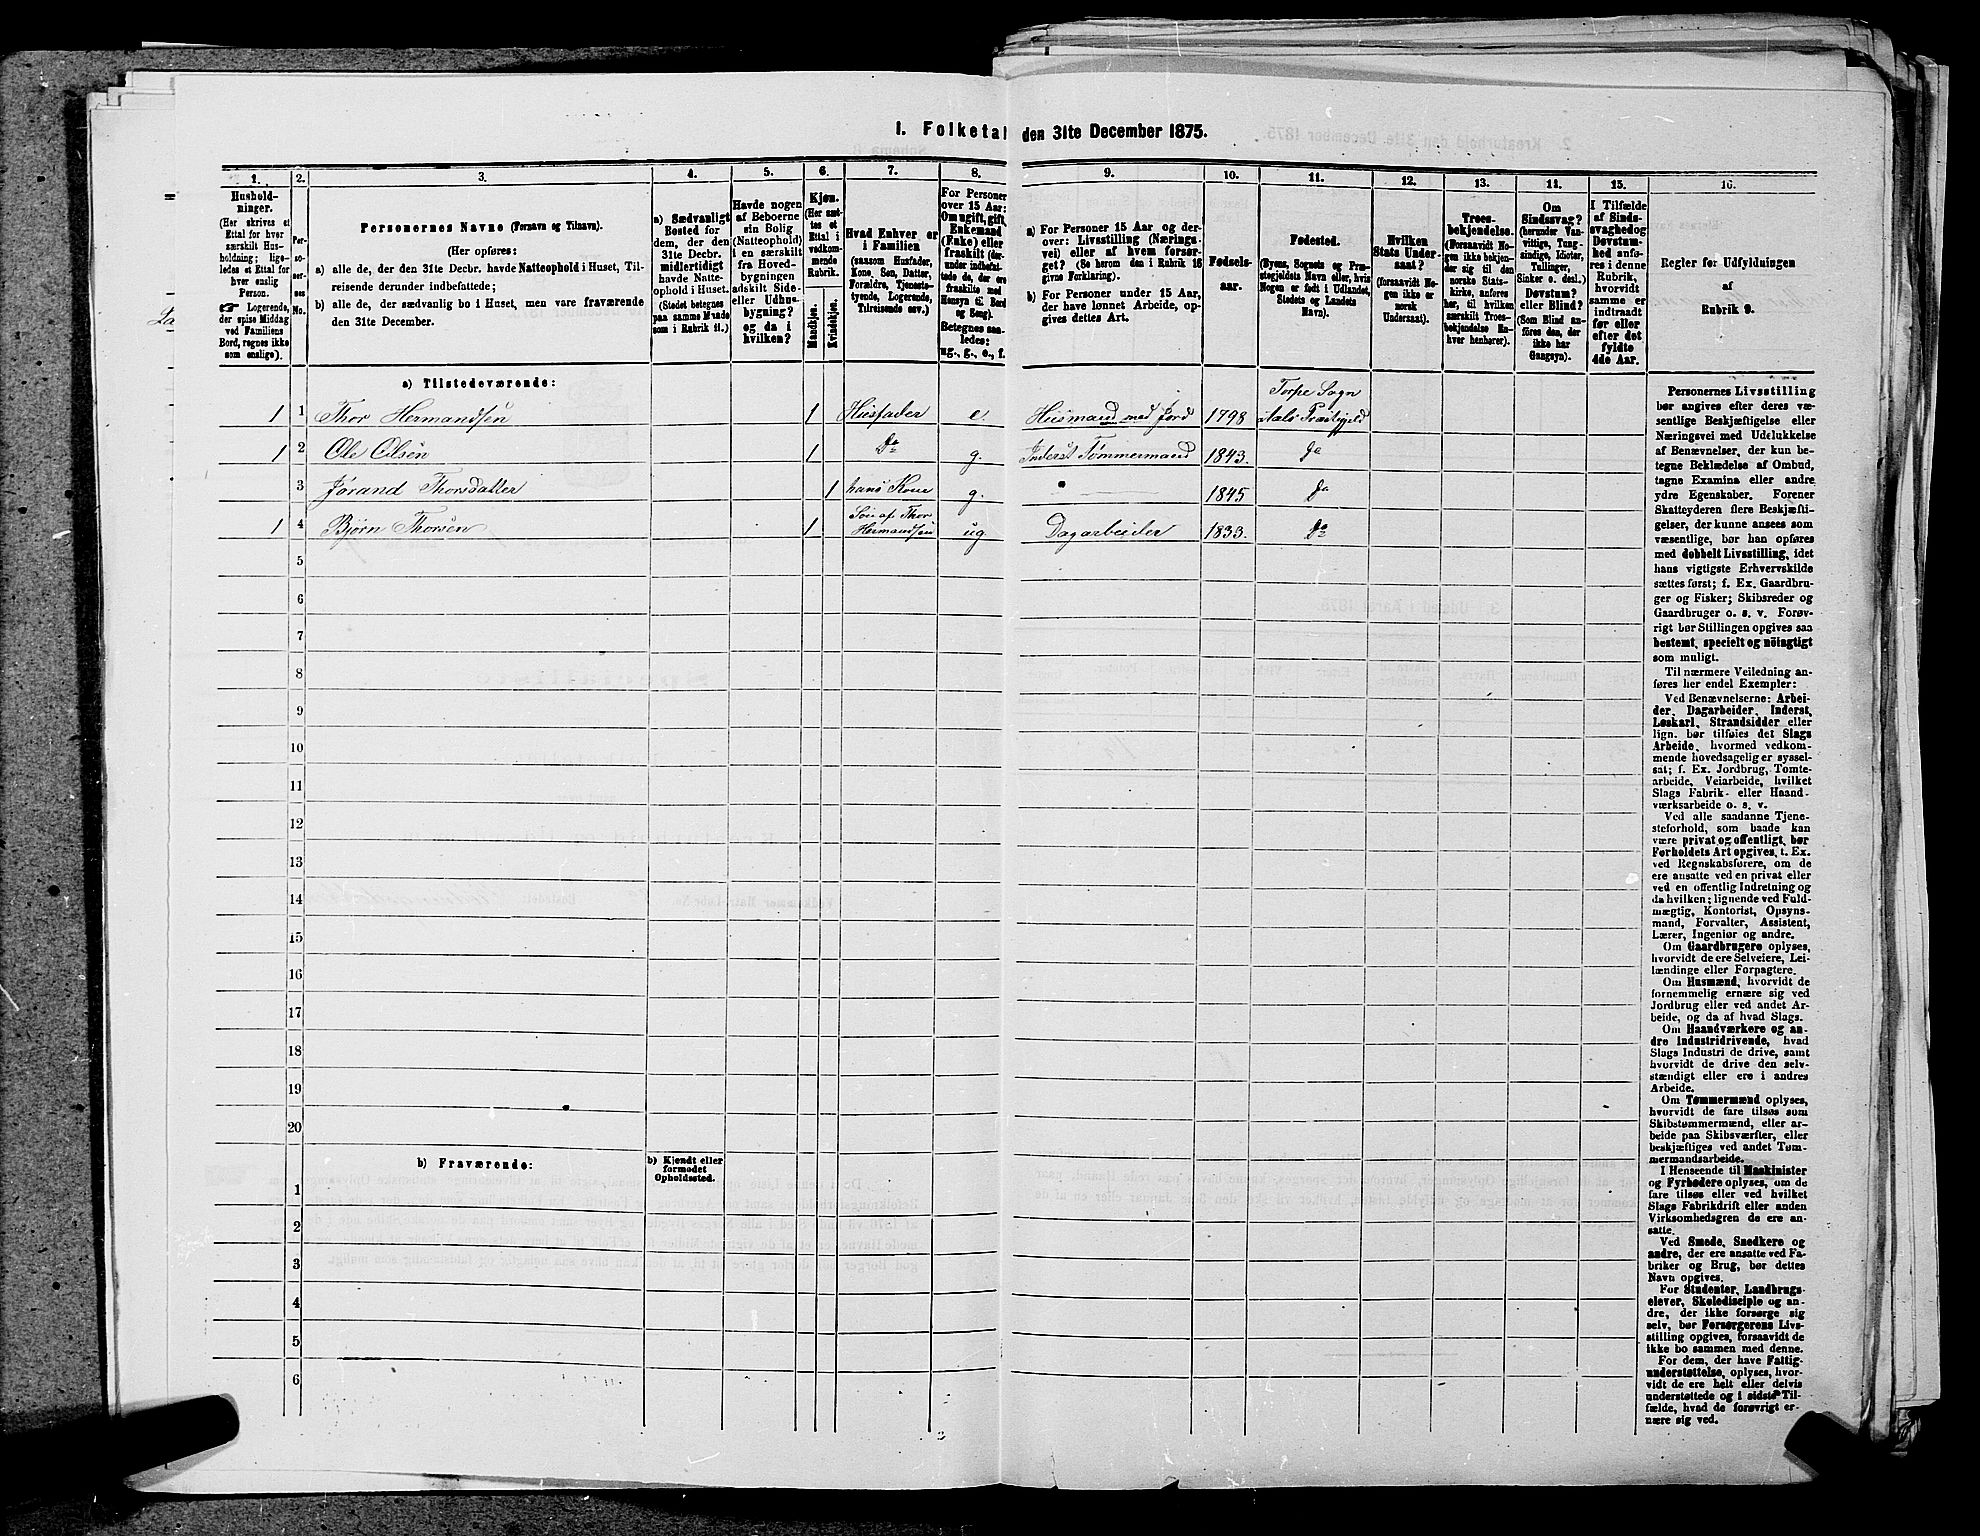 1. Folketal den 31te December 1875.
1.
2.
3.
4.
5.
6.
7.
8.
9.
10.
11.
12.
13.
14.
15.
16.
Hushold-
ninger.
(Her skrives et
Ettal for hver
særskilt Hus-
holdning; lige-
ledes et Ettal for
hver enslig
Person.
☞ Logerende,
der spise Middag
ved Familiens
Bord, regnes ikke
som enslige).
Per-
soner-
nes
No.
Personernes Navne (Fornavn og Tilnavn).
(Her opføres:
a) alle de, der den 31te Decbr. havde Natteophold i Huset, Til-
reisende derunder indbefattede;
b) alle de, der sædvanlig bo i Huset, men vare fraværende
den 31te December.
a) Sædvanligt
Bosted for
dem, der den
31te Decbr.
midlertidigt
havde Natte-
ophold i Huset.
(Stedet betegnes
paa samme Maade
som i Rubrik 11.)
Havde nogen
af Beboerne
sin Bolig
(Natteophold)
i en særskilt
fra Hoved-
bygningen
adskilt Side-
eller Udhus-
bygning?
og da i
hvilken?
Kjøn.
(Her sæt-
tes et
Ettal i
vedkom-
mende
Rubrik.
Mandkjøn.
Kvindekjøn.
Hvad Enhver er
i Familien
(saasom Husfader,
Kone, Søn, Datter,
Forældre, Tjeneste-
tyende, Logerende,
Tilreisende osv.)
For Personer
over 15 Aar:
Om ugift, gift,
Enkemand
(Enke) eller
fraskilt (der-
under indbefat-
tede de, der ere
fraskilte med
Hensyn til Bord
og Seng).
Betegnes saa-
ledes:
ug., g., e., f.
a) For Personer 15 Aar og der-
over: Livsstilling (Nærings-
vei) eller af hvem forsør-
get? (Se herom den i Rubrik 16
givne Forklaring).
b) For Personer under 15 Aar,
der have lønnet Arbeide, op-
gives dettes Art.
Fødsels-
aar.
Fødested.
(Byens, Sognets og Præ-
stegjeldets Navn eller, hvis
Nogen er født i Udlandet,
Stedets og Landets
Navn).
Hvilken
Stats Under-
saat?
(forsaavidt No-
gen ikke er
norsk
Undersaat).
Troes-
bekjendelse.
(Forsaavidt No-
gen ikke bekjen-
der sig til den
norske Stats-
kirke, anføres
her, til hvilken
særskilt Troes-
bekjendelse En-
hver henhører).
Om
Sindssvag?
(herunder Van-
vittige, Tung-
sindige, Idioter,
Tullinger,
Sinker o. desl.)
Døvstum?
eller Blind?
(Som Blind an-
føres den, der
ikke har
Gangsyn).
I Tilfælde
af Sinds-
svaghed og
Døvstum-
hed anfø-
res i denne
Rubrik,
hvorvidt
samme er
indtraadt
før eller
efter det
fyldte
4de Aar.
Regler for Udfyldningen
af
Rubrik 9.
a) Tilstedeværende:
1 1 Thor Hermandsen 1 Husfader e. Husmand med Jord 1798 Torpe Sogn
Aals Præstegjeld
1 2 Ole Olsen 1 Do g. Inderst Tømmermand 1843. Do
3 Jørand Thorsdatter 1 hans Kone g. 1845 Do
1 4 Bjørn Thorsen 1 Søn af Thor
Hermandsen ug. Dagarbeider 1833. Do
5
6
7
8
9
10
11
12
13
14
15
16
17
18
19
20
b) Fraværende:
b) Kjendt eller
formodet
Opholdssted.
1
2
3
4
5
6
Personernes Livsstilling
bør angives efter deres væ-
sentlige Beskjæftigelse eller
Næringsvei med Udelukkelse
af Benævnelser, der kun be-
tegne Beklædelse af Ombud,
tagne Examina eller andre
ydre Egenskaber. Forener
Skatteyderen flere Beskjæfti-
gelser, der kunne ansees som
væsentlige, bør han opføres
med dobbelt Livsstilling, idet
hans vigtigste Erhvervskilde
sættes først; f. Ex. Gaardbru-
ger og Fisker; Skibsreder og
Gaardbruger o. s. v. Forøv-
rigt bør Stillingen opgives saa
bestemt, specielt og nøiagtigt
som muligt.
Til nærmere Veiledning an-
føres her endel Exempler:
Ved Benævnelserne: Arbei-
der, Dagarbeider, Inderst,
Løskarl, Strandsidder eller
lign. bør tilføies det Slags
Arbeide, hvormed vedkom-
mende hovedsagelig er syssel-
sat; f. Ex. Jordbrug, Tomte-
arbeide, Veiarbeide, hvilket
Slags Fabrik- eller Haand-
værksarbeide o. s. v.
Ved alle saadanne Tjene-
steforhold, som baade kan
være privat og offentligt, bør
Forholdets Art opgives, t. Ex.
ved Regnskabsførere, om de
ere ansatte ved en privat eller
ved en offentlig Indretning og
da hvilken; lignende ved Fuld-
mægtig, Kontorist, Opsyns-
mand, Forvalter, Assistent,
Lærer, Ingeniør og andre.
Om Gaardbrugere oplyses,
hvorvidt de ere Selveiere, Lei-
lændinge eller Forpagtere.
Om Husmænd, hvorvidt de
fornemmelig ernære sig ved
Jordbrug eller ved andet Ar-
beide, og da af hvad Slags.
Om Haandværkere og an-
dre Industridrivende, hvad
Slags Industri de drive, samt
hvorvidt de drive den selv-
stændigt eller ere i andres
Arbeide.
Om Tømmermænd oplyses,
hvorvidt de fare tilsøs som
Skibstømmermænd, eller ar-
beide paa Skibsværfter, eller
beskjæftiges ved andet Tøm-
mermandsarbeide.
I Henseende til Maskinister
og Fyrbødere oplyses, om de
fare tilsøs eller ved hvilket
Slags Fabrikdrift eller anden
Virksomhedsgren de ere an-
satte.
Ved Smede, Snedkere og
andre, der ere ansatte ved Fa-
briker og Brug, bør dettes
Navn opgives.
For Studenter, Landbrugs-
elever, Skoledisciple og an-
dre, der ikke forsørge sig
selv, bør Forsørgerens Livs-
stilling opgives, forsaavidt de
ikke bo sammen med denne.
For dem, der have Fattig-
understøttelse, oplyses, hvor-
vidt de ere helt eller delvis
understøttede og i sidste Til-
fælde, hvad de forøvrigt er-
nære sig ved.